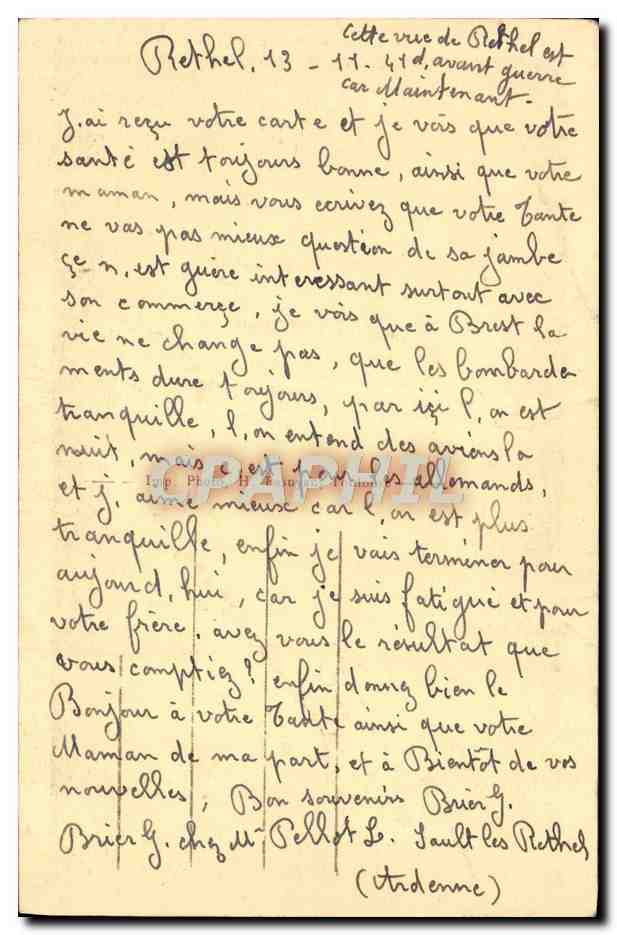 Cette vue de Rethel est
d'avant guerre
car Maintenant.
Rethel, 13 - 11 - 41
J,ai reçu votre carte et je vois que votre
santé est toujours bonne, ainsi que votre
maman, mais vous ecrivez que votre Tante
ne vas pas mieux question de sa jambe
çe n,est guère interessant surtout avec
son commerçe, je vois que à Brest la
vie ne change pas, que les bombarde
ments dure toujours, par içi l,on est
tranquille, l,on entend des avions la
nuit, mais c,est pour les allemands,
CPAPHIL
Imp. Photo, H.
et j,aime mieux car l,on est plus
tranquille, enfin je vais terminer pour
aujourd,hui, car je suis fatigué et pour
votre frère, avez vous le résultat que
vous comptiez? enfin donnez bien le
Bonjour à votre Tante ainsi que votre
Maman de ma part, et à Bientôt de vos
nouvelles, Bon souvenirs Brier G.
Brier G. chez Mr Pellot L. Sault les Rethel
(Ardenne)